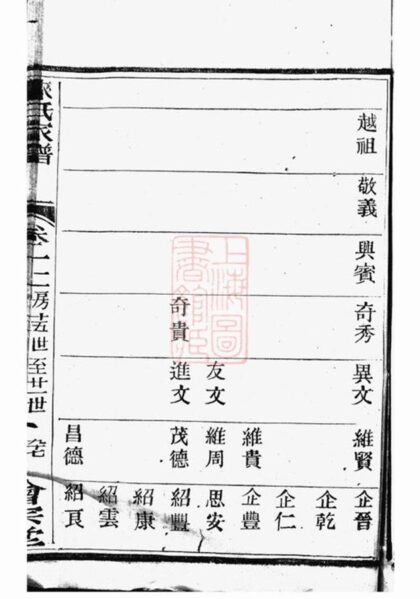 越祖
敬義
興賓 奇秀 異文 維賢 企晉
企乾
企仁
維貴 企豐
友文 維周 思安
奇貴 進文 茂德 紹豐
紹康
紹雲
昌德 紹良
氏家譜
卷一二房十五世至廿世
上海圖書館藏